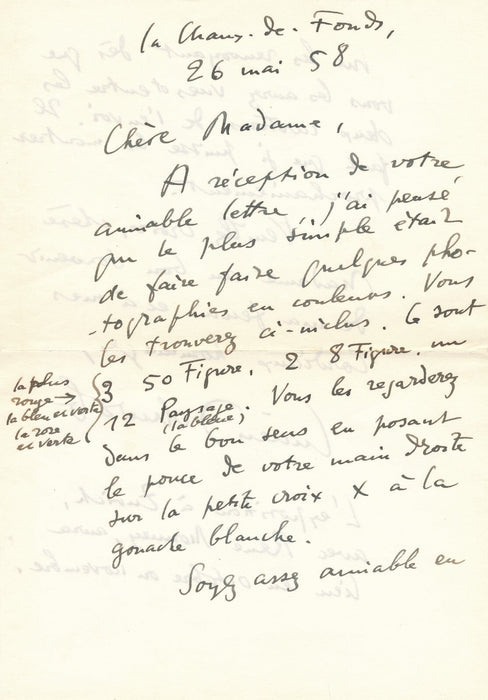 la Chaux-de-Fonds,
26 mai 58
Chère Madame,
A réception de votre
aimable lettre, j'ai pensé
que le plus simple était
de faire faire quelques pho-
-tographies en couleurs. Vous
les trouverez ci-inclus. Ce sont
3 50 Figure, 2 8 Figure, un
12 Paysage. Vous les regarderez
(la bleue)
la plus
rouge →
la bleu et verte
la rose
et verte
dans le bon sens en posant
le pouce de votre main droite
sur la petite croix x à la
gouache blanche.
Soyez assez aimable en